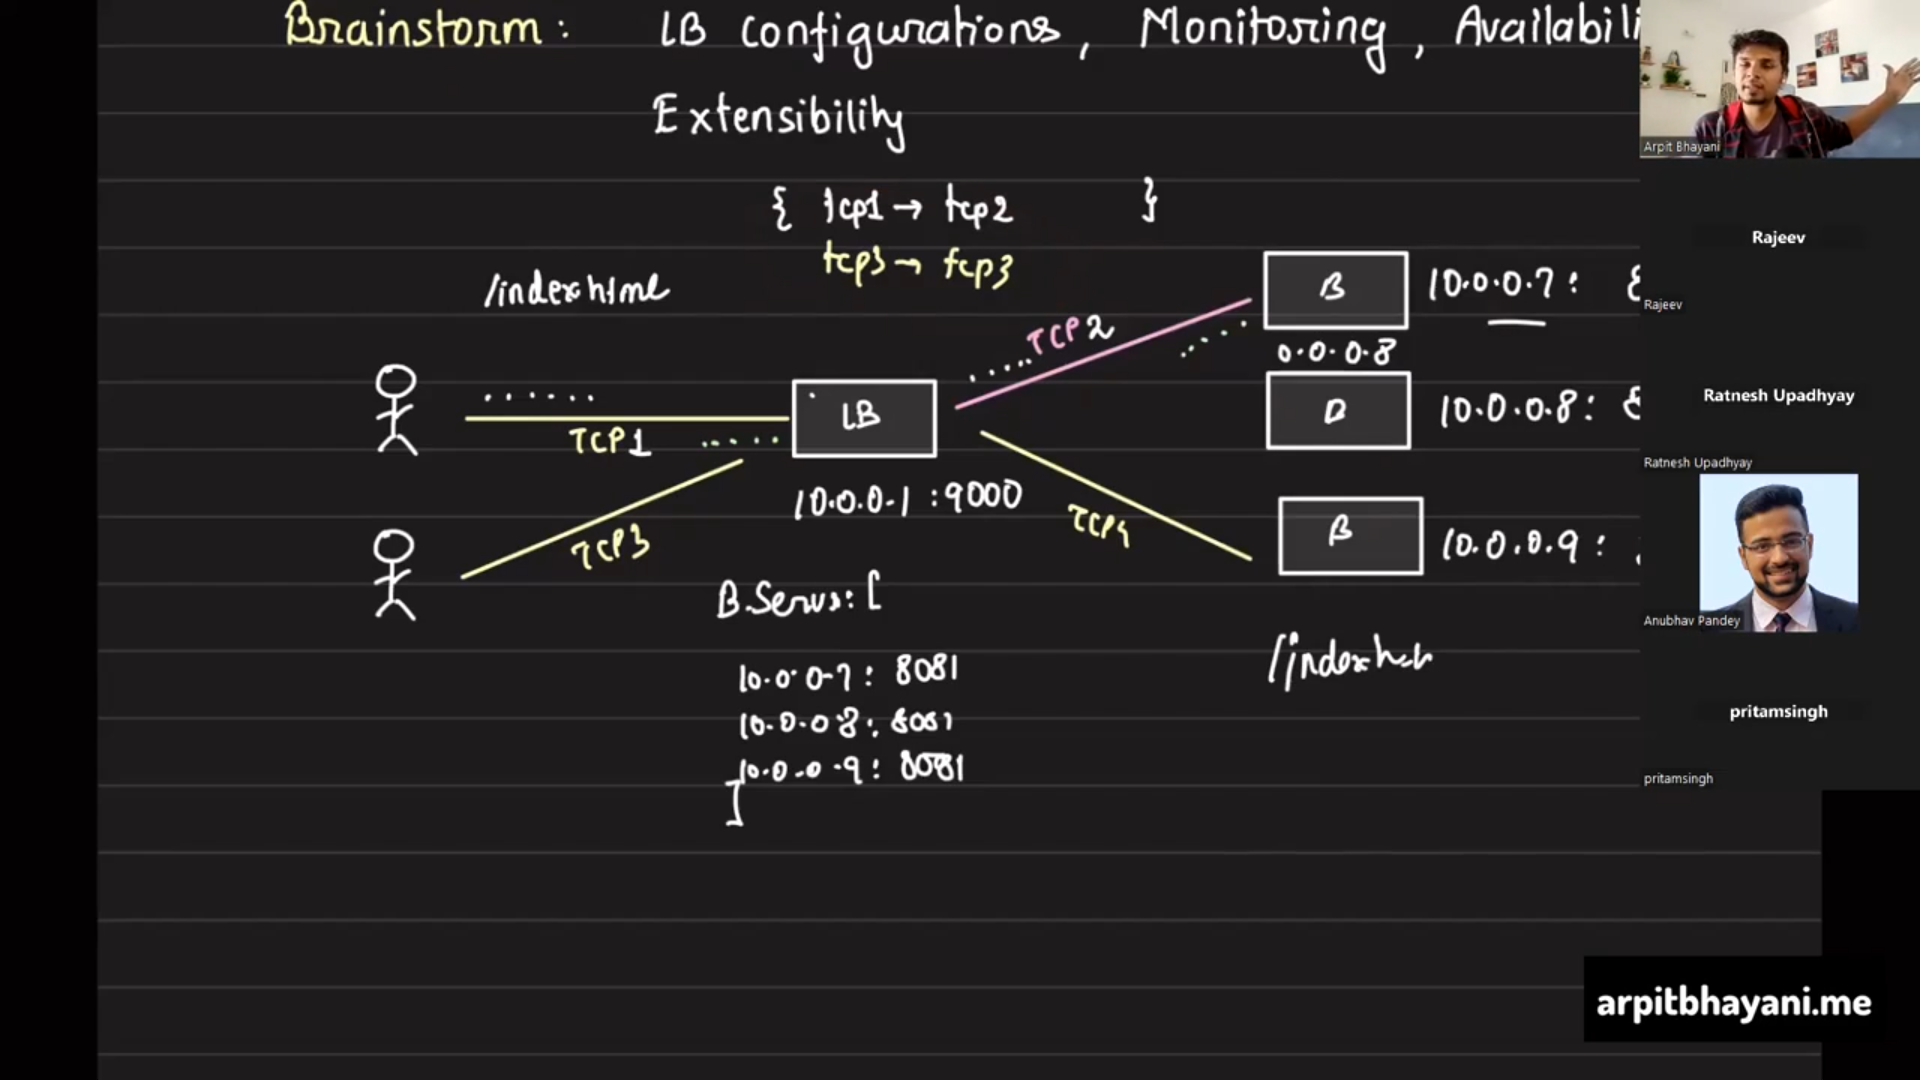 Brainstorm: LB configurations, Monitoring, Availabili
Extensibility
{ tcp1 → tcp2 }
tcp3 → tcp3
/index.html
TCP1
TCP3
LB
10.0.0.1 :9000
TCP2
TCP4
B 10.0.0.7:
0.0.0.8
B 10.0.0.8:
B 10.0.0.9:
B.Servs: [
10.0.0.7: 8081
10.0.0.8: 8081
10.0.0.9: 8081
]
Arpit Bhayani
Rajeev
Rajeev
Ratnesh Upadhyay
Ratnesh Upadhyay
Anubhav Pandey
pritamsingh
pritamsingh
arpitbhayani.me